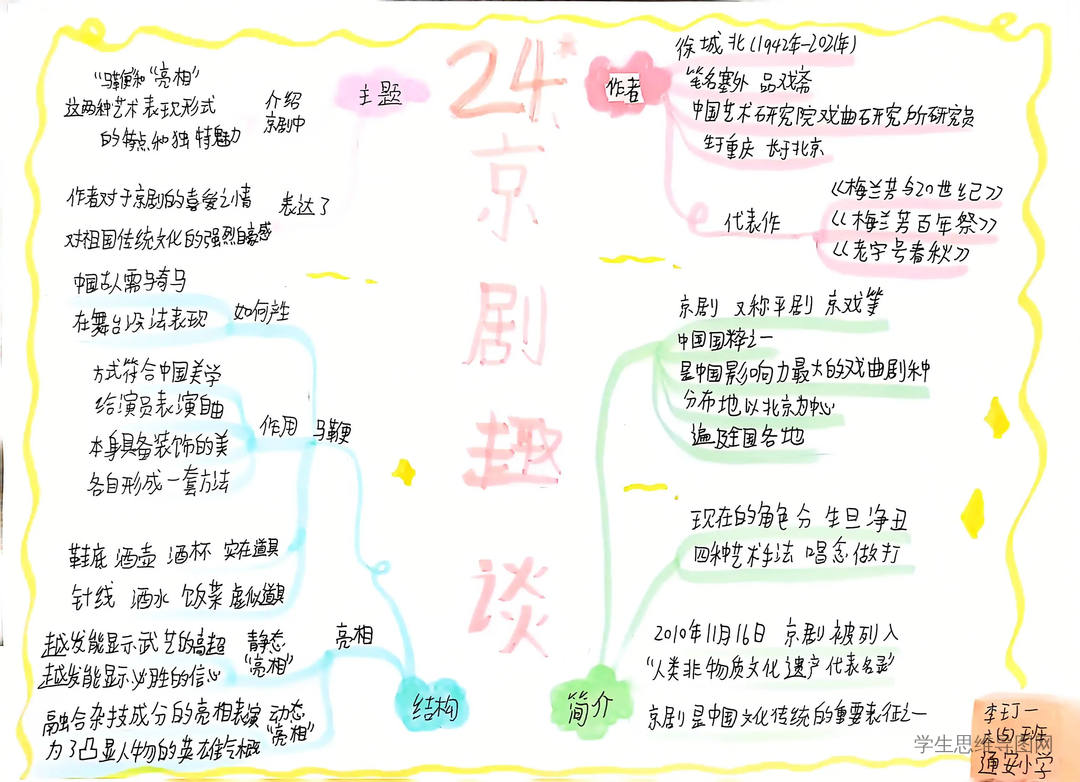 24、京剧趣谈
主题
介绍
京剧中
"马鞭"和"亮相"
这两种艺术表现形式
的特点和独特魅力
表达了
作者对于京剧的喜爱之情
对祖国传统文化的强烈自豪感
作者
徐城北(1942年-2021年)
笔名塞外 品戏斋
中国艺术研究院戏曲研究所研究员
生于重庆 长于北京
代表作
《梅兰芳与20世纪》
《梅兰芳百年祭》
《老字号春秋》
结构
马鞭
如何产生
中国古人需马骑马
在舞台没法表现
作用
方式符合中国美学
给演员表演自由
本身具备装饰的美
各自形成一套方法
鞋底 酒壶 酒杯 实在道具
针线 酒水 饭菜 虚拟道具
亮相
静态
"亮相"
越发能显示武艺的高超
越发能显示必胜的信心
动态
"亮相"
融合杂技成分的亮相表演
为了凸显人物的英雄气概
简介
京剧 又称平剧 京戏等
中国国粹之一
是中国影响力最大的戏曲剧种
分布地以北京为中心
遍及全国各地
现在的角色分 生旦净丑
四种艺术手法 唱念做打
2010年11月16日 京剧被列入
"人类非物质文化遗产代表名录"
京剧是中国文化传统的重要表征之一
李玎一
通安小学
学生思维导图网